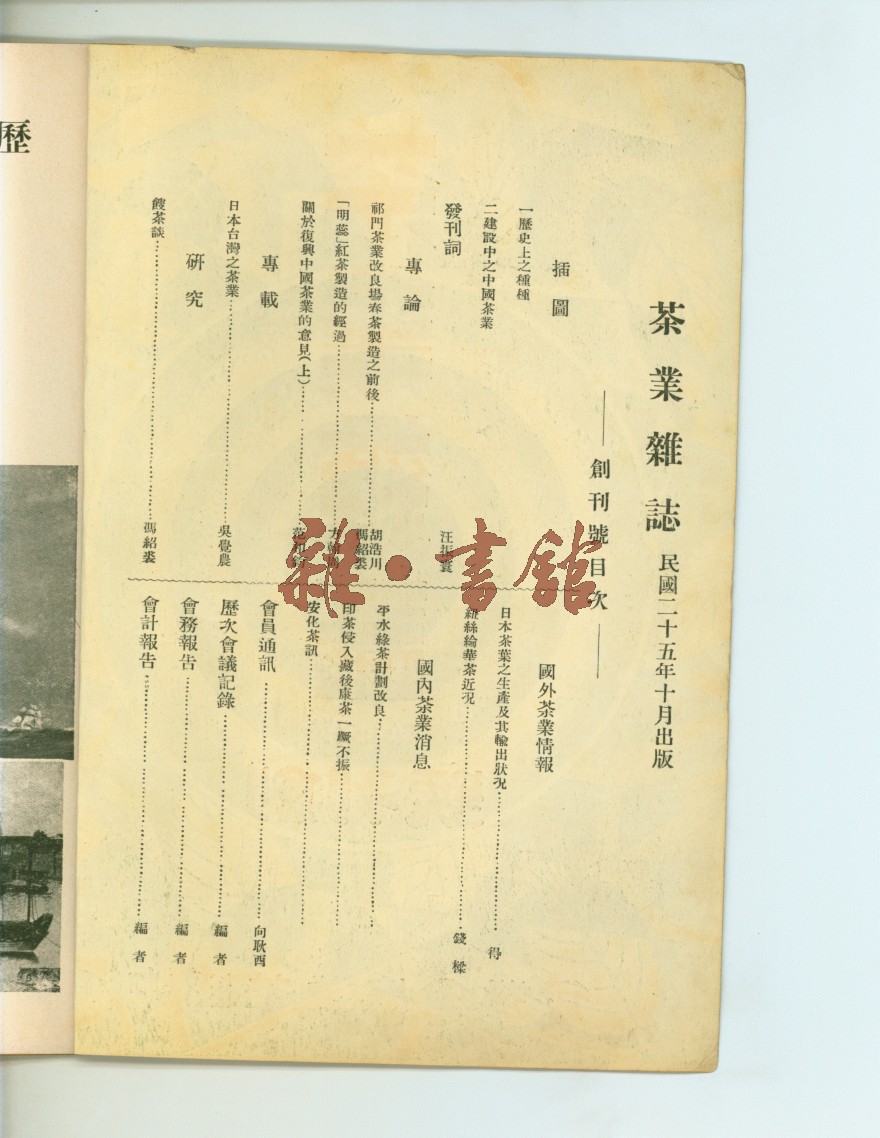 茶業雜誌 民國二十五年十月出版
——創刊號目次——
插圖
一歷史上之種種
二建設中之中國茶業
發刊詞 汪振寰
專論
祁門茶業改良場春茶製造之前後 胡浩川 馮紹裘
「明蕊」紅茶製造的經過
關於復興中國茶業的意見(上)
專載
日本台灣之茶業 吳覺農
研究
餿茶談 馮紹裘
國外茶業情報
日本茶葉之生產及其輸出狀況 得
紐絲綸華茶近況 錢樑
國內茶業消息
平水綠茶計劃改良
印茶侵入藏後康茶一蹶不振
安化茶訊
會員通訊 向耿酉
歷次會議記錄 編者
會務報告 編者
會計報告 編者
歷
雜·書館